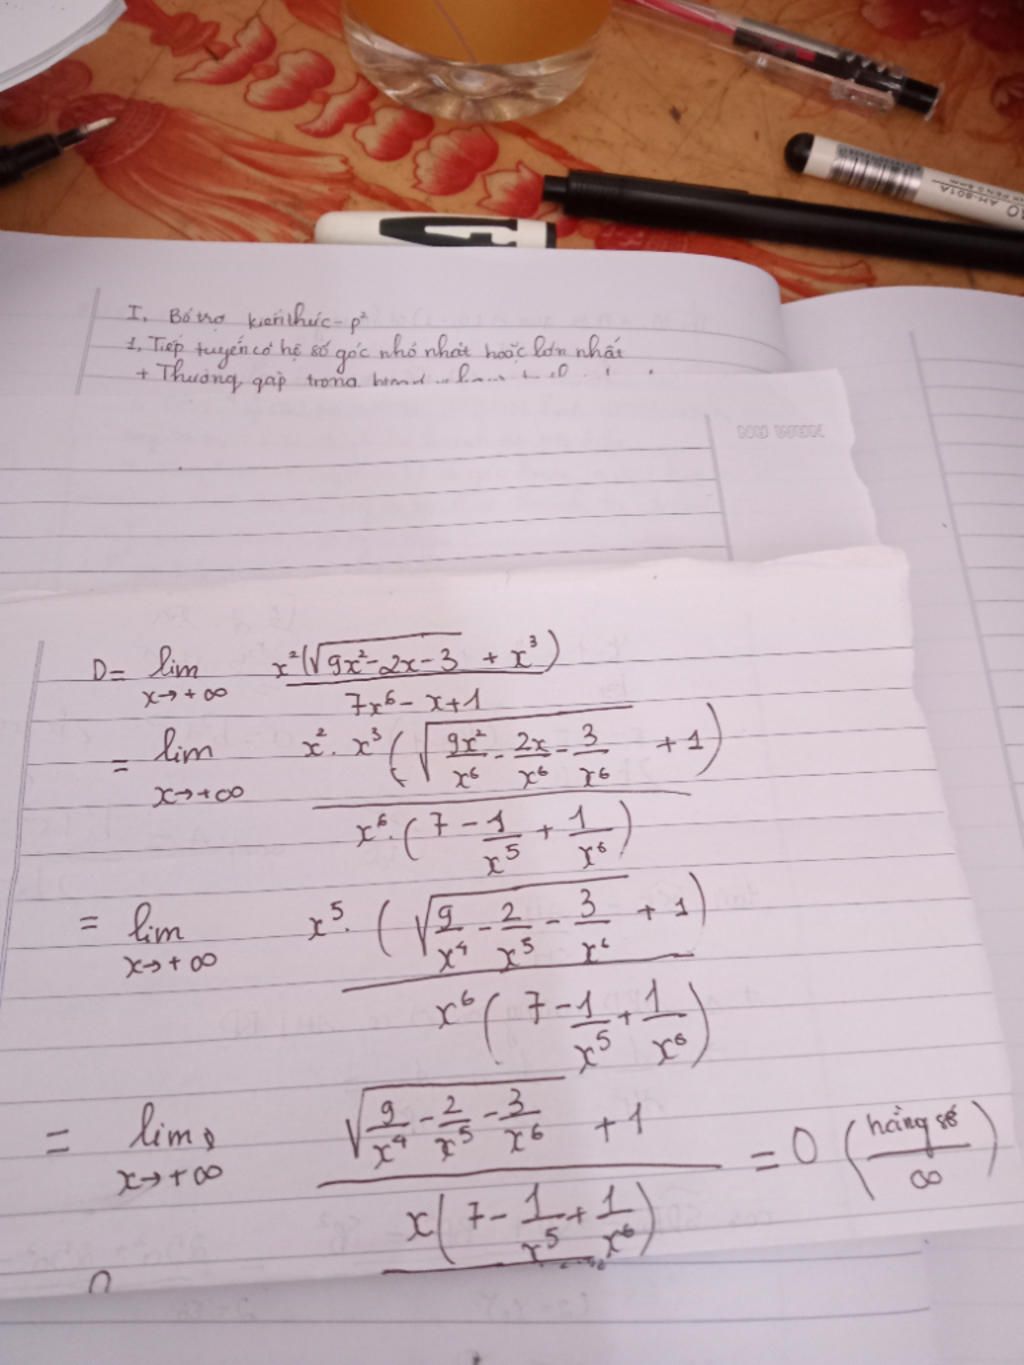 AH-801A
I. Bổ trợ kiến thức - p²
1, Tiếp tuyến có hệ số góc nhỏ nhất hoặc lớn nhất
+ Thường gặp trong
D = lim x→+∞ x²(√(9x²-2x-3) + x³) / (7x⁶ - x + 1)
= lim x→+∞ x² . x³ (√(9x²/x⁶ - 2x/x⁶ - 3/x⁶) + 1) / x⁶ . (7 - 1/x⁵ + 1/x⁶)
= lim x→+∞ x⁵ . (√(9/x⁴ - 2/x⁵ - 3/x⁶) + 1) / x⁶ (7 - 1/x⁵ + 1/x⁶)
= lim x→+∞ √(9/x⁴ - 2/x⁵ - 3/x⁶) + 1 / x(7 - 1/x⁵ + 1/x⁶) = 0 (hằng số / ∞)